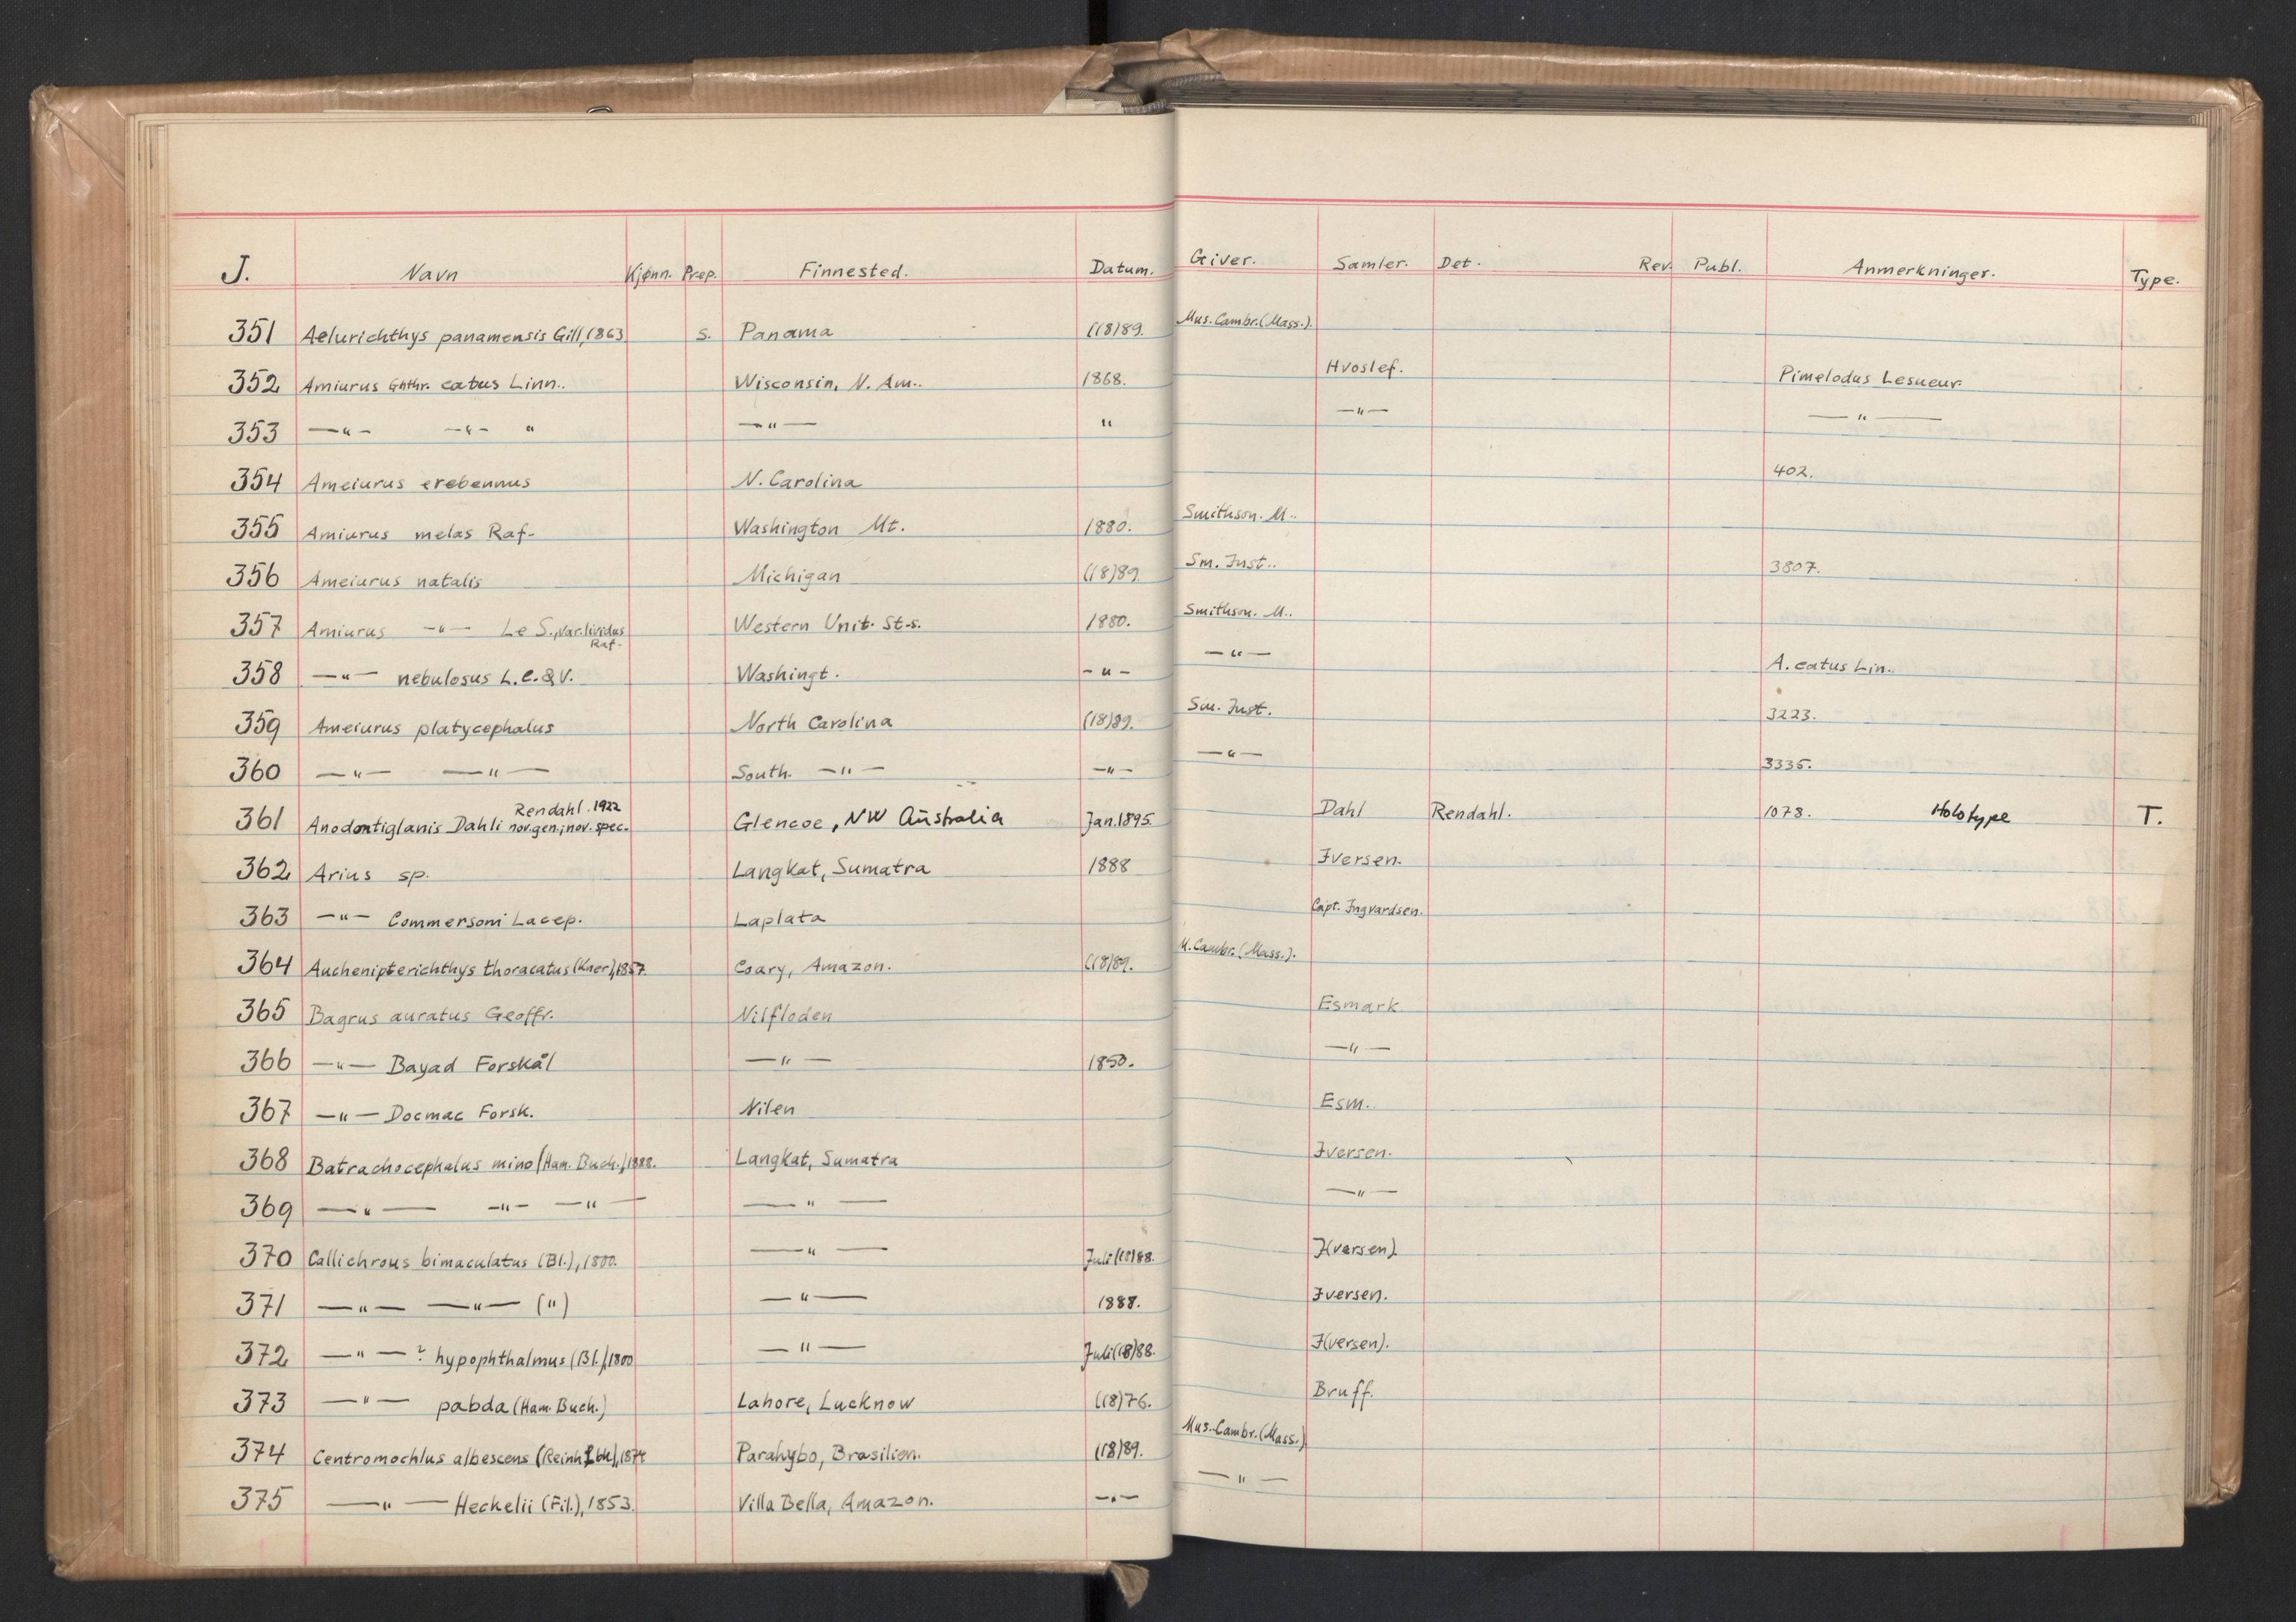 J. Navn Kjønn. Prep. Finnested. Datum. Giver. Samler. Det. Rev. Publ. Anmerkninger. Type.
351 Aelurichthys panamensis Gill, 1863 s. Panama (18)89. Mus. Cambr. (Mass.).
352 Amiurus Gnthr. catus Linn.. Wisconsin, N. Am.. 1868. Hvoslef. Pimelodus Lesueur.
353 —"— —"— " —"— " —"— —"—
354 Ameiurus erebennus N. Carolina 402.
355 Amiurus melas Raf. Washington Mt. 1880. Smithson. M..
356 Ameiurus natalis Michigan (18)89. Sm. Inst.. 3807.
357 Amiurus —"— Le S., var. lividus Raf. Western Unit. St-s. 1880. Smithson. M..
358 —"— nebulosus L. C. & V. Washingt. —"— —"— A. catus Lin..
359 Ameiurus platycephalus North Carolina (18)89. Sm. Inst. 3223.
360 —"— —"— South. —"— —"— —"— 3335.
361 Anodontiglanis Dahli Rendahl. 1922 nov. gen.; nov. spec. Glencoe, NW Australia Jan. 1895. Dahl Rendahl. 1078. Holotype T.
362 Arius sp. Langkat, Sumatra 1888 Iversen.
363 —"— Commersoni Lacep. Laplata Capt. Ingvardsen.
364 Auchenipterichthys thoracatus (Kner), 1857. Coary, Amazon. (18)89. M. Cambr. (Mass.).
365 Bagrus auratus Geoffr. Nilfloden Esmark
366 —"— Bayad Forskål —"— 1850. —"—
367 —"— Docmac Forsk. Nilen Esm.
368 Batrachocephalus mino (Ham. Buch.), 1888. Langkat, Sumatra Iversen.
369 —"— —"— —"— —"— —"—
370 Callichrous bimaculatus (Bl.), 1800. —"— Juli (18)88. I(versen).
371 —"— —"— (") —"— 1888. Iversen.
372 —"— ? hypophthalmus (Bl.), 1800 —"— Juli (18)88. I(versen).
373 —"— pabda (Ham. Buch.) Lahore, Lucknow (18)76. Bruff.
374 Centromochlus albescens (Reinh. Ltk), 1874 Parahybo, Brasilien. (18)89. Mus. Cambr. (Mass.)
375 —"— Heckelii (Fil.), 1853. Villa Bella, Amazon. —"— —"—